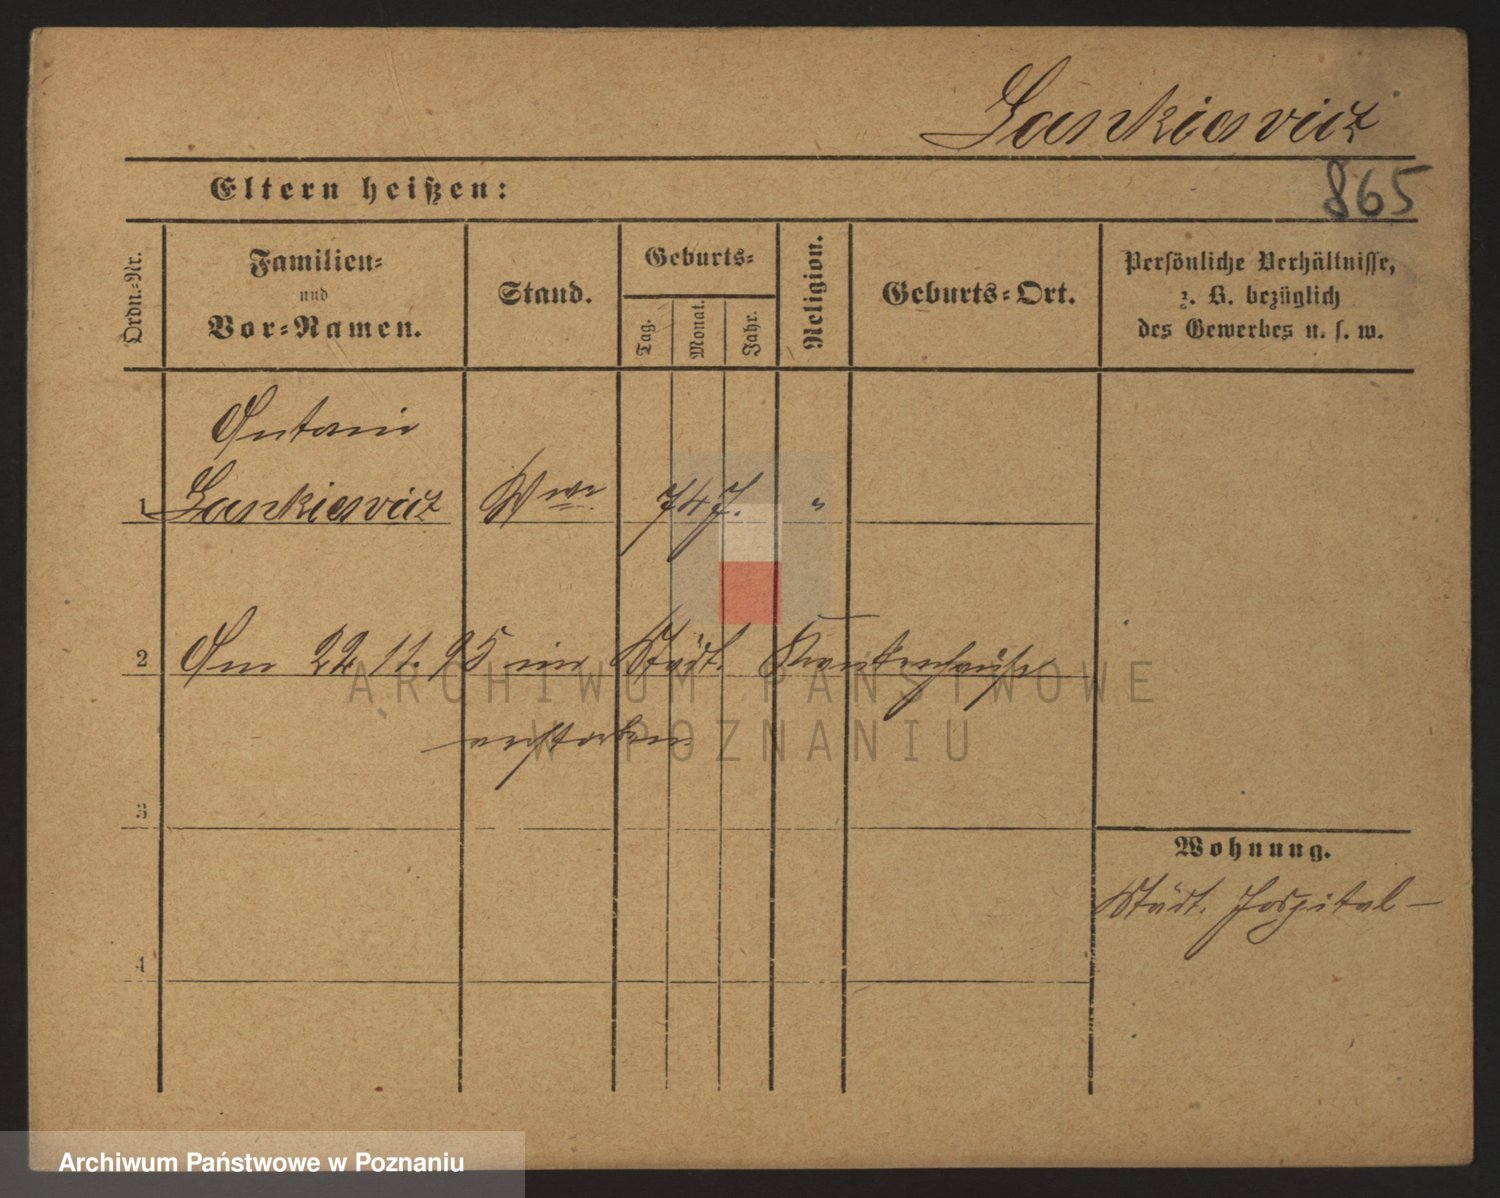 Lankiewicz
865
Eltern heißen:
Ordn.-Nr.
Familien-
und
Vor-Namen.
Stand.
Geburts-
Tag.
Monat.
Jahr.
Religion.
Geburts-Ort.
Persönliche Verhältnisse,
z. B. bezüglich
des Gewerbes u. s. w.
Antonie
1 Lankiewicz Wwe 74 J. "
2 Am 22 11. 95 im Städt. Krankenhause
verstorben.
3
Wohnung.
Städt. Hospital –
4
ARCHIWUM PAŃSTWOWE
W POZNANIU
Archiwum Państwowe w Poznaniu